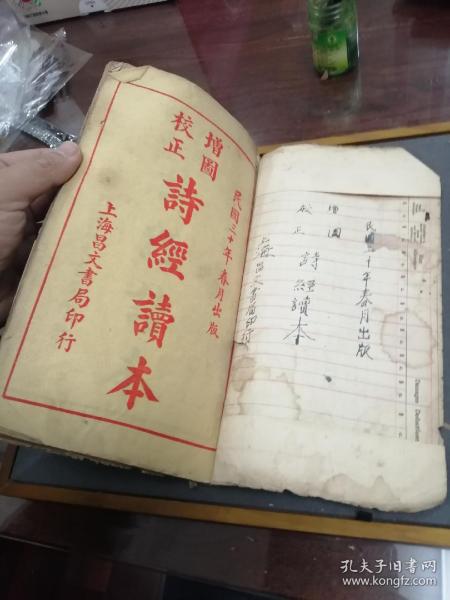 民國三十年春月出版
增圖
校正
詩經讀本
上海昌文書局印行
民國三十年春月出版
增圖
校正
詩經讀本
上海昌文書局印行
孔夫子旧书网
www.kongfz.com